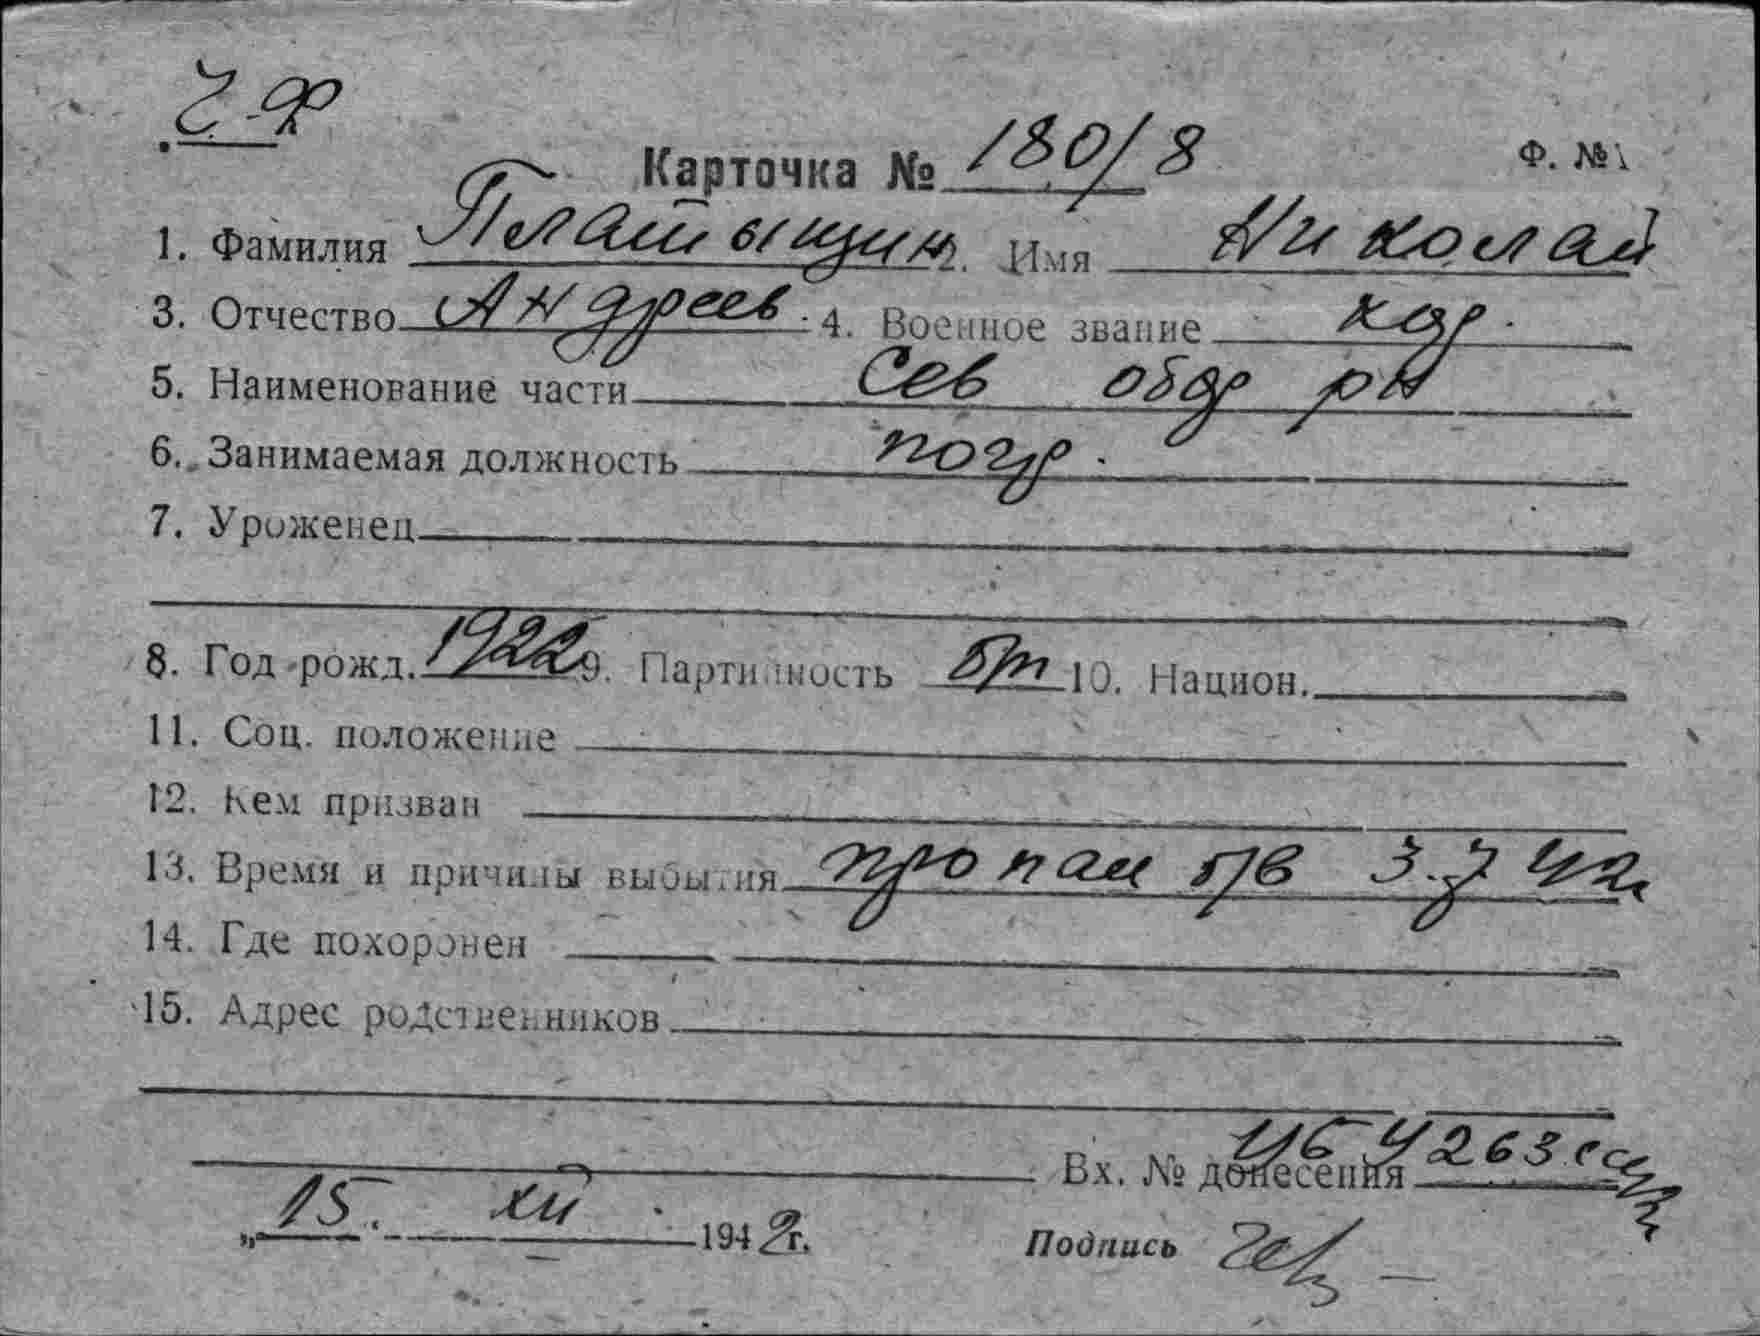 Ч.Ф
Карточка № 180/8 Ф. №1
1. Фамилия Платыщин 2. Имя Николай
3. Отчество Андреев. 4. Военное звание кр.
5. Наименование части Сев обор рн
6. Занимаемая должность погр.
7. Уроженец
8. Год рожд. 1922 9. Партийность б/п 10. Национ.
11. Соц. положение
12. Кем призван
13. Время и причины выбытия пропал б/в 3.7 42г
14. Где похоронен
15. Адрес родственников
Вх. № донесения 4263
„15. XII 1942г.
Подпись